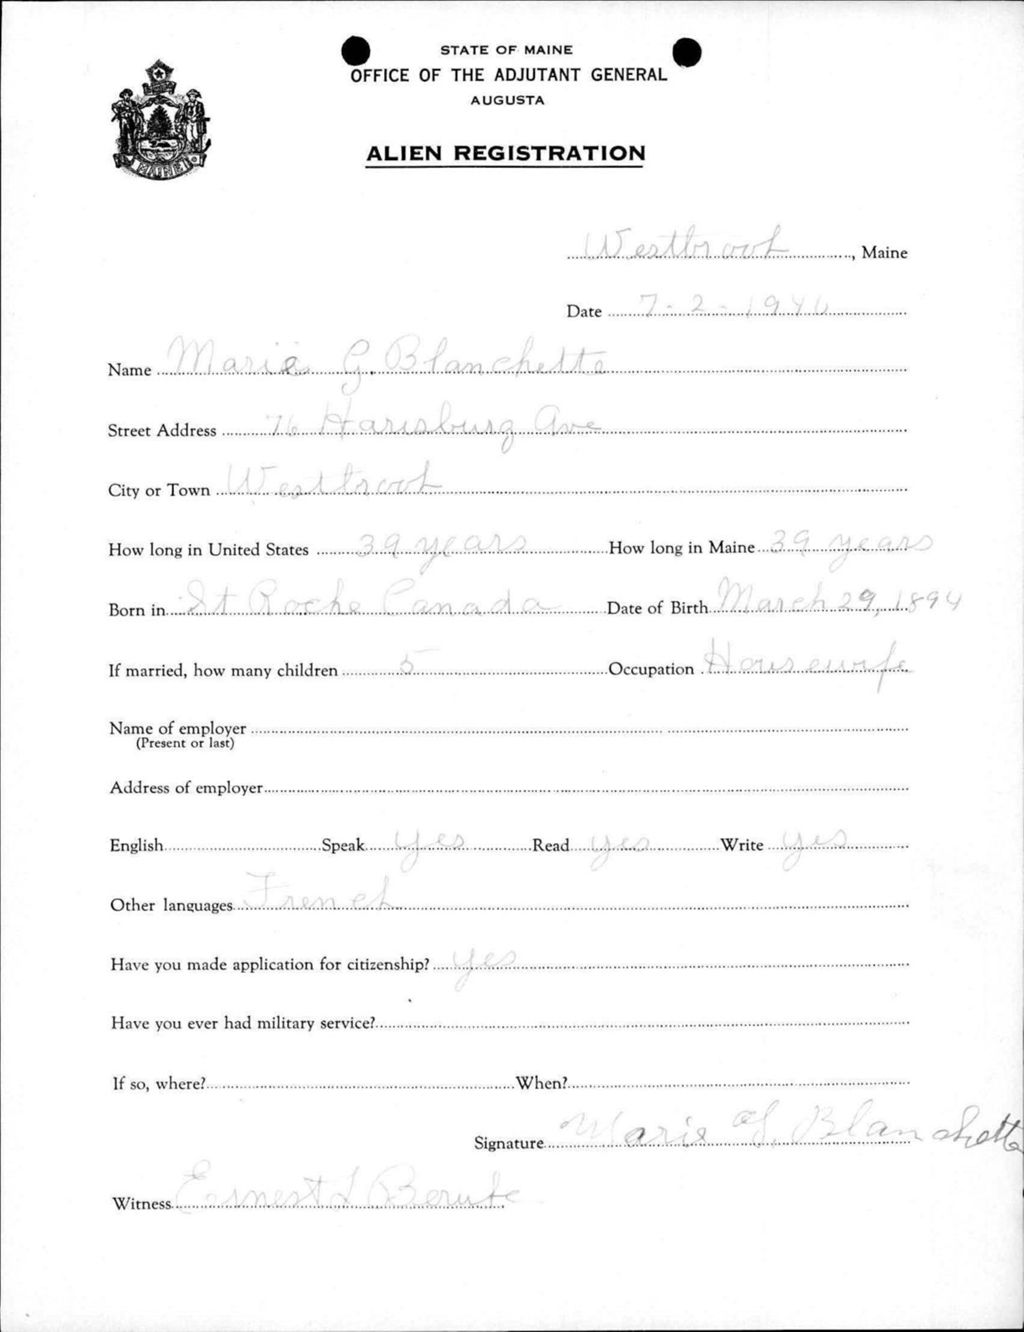 STATE OF MAINE
OFFICE OF THE ADJUTANT GENERAL
AUGUSTA
ALIEN REGISTRATION
MAINE
Westbrook, Maine
Date 7-2-1940
Name Marie G. Blanchette
Street Address 76 Harisburg Ave
City or Town Westbrook
How long in United States 39 years How long in Maine 39 years
Born in St Roche Canada Date of Birth March 29, 1894
If married, how many children 5 Occupation Housewife
Name of employer
(Present or last)
Address of employer
English Speak yes Read yes Write yes
Other languages French
Have you made application for citizenship? yes
Have you ever had military service?
If so, where? When?
Signature Marie G. Blanchette
Witness Ernest L